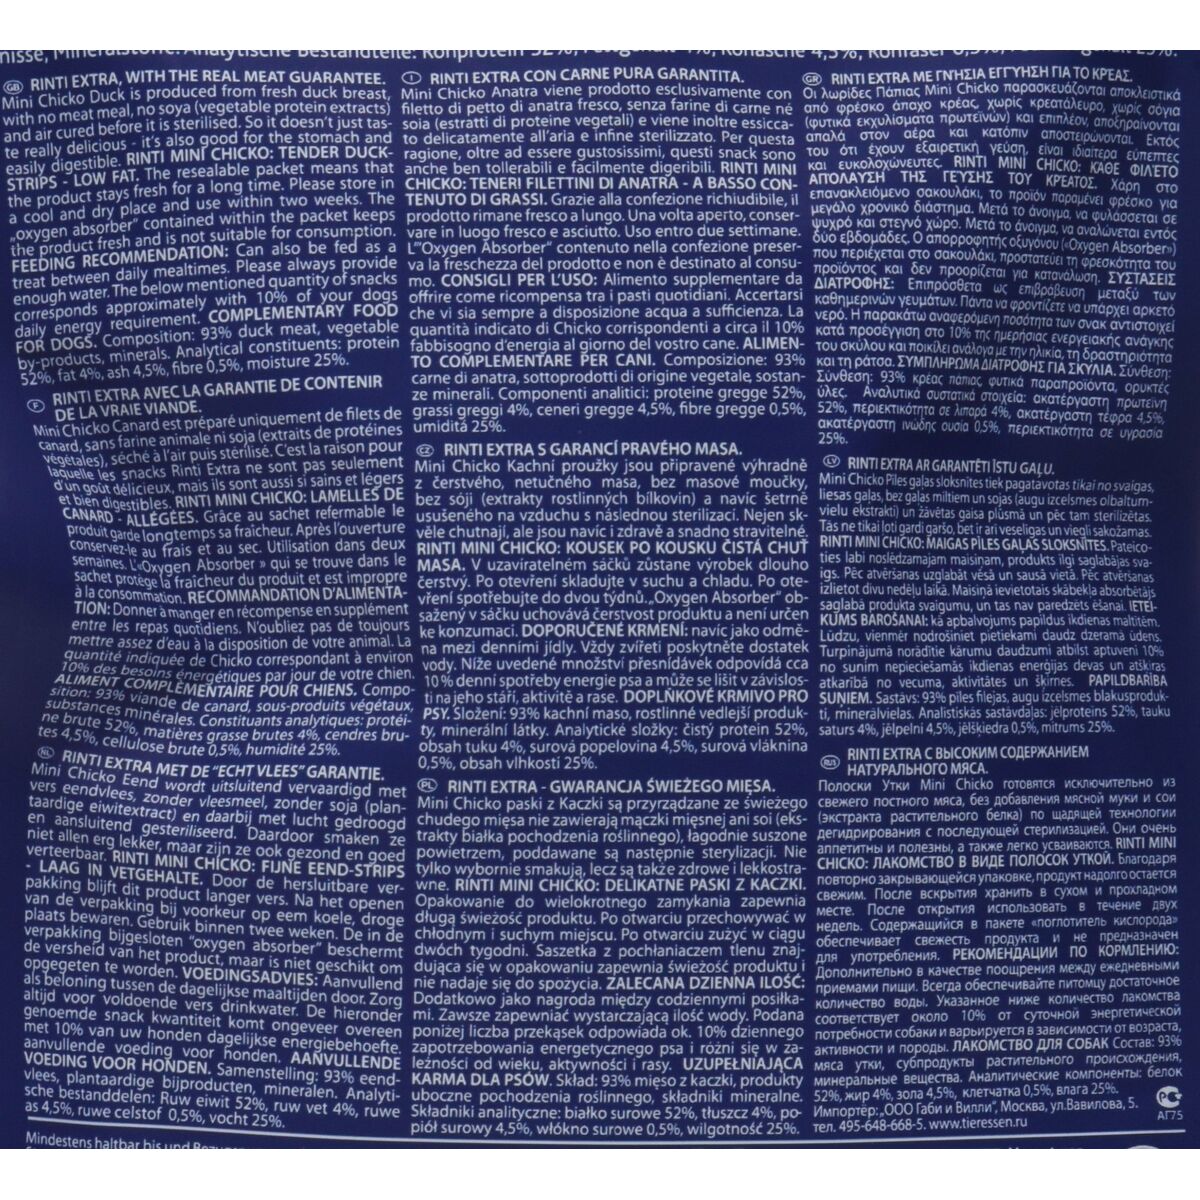 nisse, Mineralstoffe. Analytische Bestandteile: Rohprotein 52%, Fettgehalt 4%, Rohasche 4,5%, Rohfaser 0,5%,
GB RINTI EXTRA, WITH THE REAL MEAT GUARANTEE.
Mini Chicko Duck is produced from fresh duck breast,
with no meat meal, no soya (vegetable protein extracts)
and air cured before it is sterilised. So it doesn't just tas-
te really delicious - it's also good for the stomach and
easily digestible. RINTI MINI CHICKO: TENDER DUCK-
STRIPS - LOW FAT. The resealable packet means that
the product stays fresh for a long time. Please store in
a cool and dry place and use within two weeks. The
„oxygen absorber" contained within the packet keeps
the product fresh and is not suitable for consumption.
FEEDING RECOMMENDATION: Can also be fed as a
treat between daily mealtimes. Please always provide
enough water. The below mentioned quantity of snacks
corresponds approximately with 10% of your dogs
daily energy requirement. COMPLEMENTARY FOOD
FOR DOGS. Composition: 93% duck meat, vegetable
by-products, minerals. Analytical constituents: protein
52%, fat 4%, ash 4,5%, fibre 0,5%, moisture 25%.
F RINTI EXTRA AVEC LA GARANTIE DE CONTENIR
DE LA VRAIE VIANDE.
Mini Chicko Canard est préparé uniquement de filets de
canard, sans farine animale ni soja (extraits de protéines
végétales), séché à l'air puis stérilisé. C'est la raison pour
laquelle les snacks Rinti Extra ne sont pas seulement
d'un goût délicieux, mais ils sont aussi si sains et légers
et bien digestibles. RINTI MINI CHICKO: LAMELLES DE
CANARD - ALLÉGÉES. Grâce au sachet refermable le
produit garde longtemps sa fraîcheur. Après l'ouverture
conservez-le au frais et au sec. Utilisation dans deux
semaines. L'«Oxygen Absorber » qui se trouve dans le
sachet protège la fraîcheur du produit et est impropre
à la consommation. RECOMMANDATION D'ALIMENTA-
TION: Donner à manger en récompense en supplément
entre les repas quotidiens. N'oubliez pas de toujours
mettre assez d'eau à la disposition de votre animal. La
quantité indiquée de Chicko correspondant à environ
10% des besoins énergétiques par jour de votre chien.
ALIMENT COMPLÉMENTAIRE POUR CHIENS. Compo-
sition: 93% viande de canard, sous-produits végétaux,
substances minérales. Constituants analytiques: protéi-
ne brute 52%, matières grasse brutes 4%, cendres bru-
tes 4,5%, cellulose brute 0,5%, humidité 25%.
NL RINTI EXTRA MET DE "ECHT VLEES" GARANTIE.
Mini Chicko Eend wordt uitsluitend vervaardigd met
vers eendvlees, zonder vleesmeel, zonder soja (plan-
taardige eiwitextract) en daarbij met lucht gedroogd
en aansluitend gesteriliseerd. Daardoor smaken ze
niet allen erg lekker, maar zijn ze ook gezond en goed
verteerbaar. RINTI MINI CHICKO: FIJNE EEND-STRIPS
- LAAG IN VETGEHALTE. Door de hersluitbare ver-
pakking blijft dit product langer vers. Na het openen
van de verpakking bij voorkeur op eem koele, droge
plaats bewaren. Gebruik binnen twee weken. De in de
verpakking bijgesloten "oxygen absorber" beschermt
de versheid van het product, maar is niet geschikt om
opgegeten te worden. VOEDINGSADVIES: Aanvullend
als beloning tussen de dagelijkse maaltijden door. Zorg
altijd voor voldoende vers drinkwater. De hieronder
genoemde snack kwantiteit komt ongeveer overeen
met 10% van uw honden dagelijkse energiebehoefte.
aanvullende voeding voor honden. AANVULLENDE
VOEDING VOOR HONDEN. Samenstelling: 93% eend-
vlees, plantaardige bijproducten, mineralen. Analyti-
sche bestanddelen: Ruw eiwit 52%, ruw vet 4%, ruwe
as 4,5%, ruwe celstof 0,5%, vocht 25%.
I RINTI EXTRA CON CARNE PURA GARANTITA.
Mini Chicko Anatra viene prodotto esclusivamente con
filetto di petto di anatra fresco, senza farine di carne né
soia (estratti di proteine vegetali) e viene inoltre essicca-
to delicatamente all'aria e infine sterilizzato. Per questa
ragione, oltre ad essere gustosissimi, questi snack sono
anche ben tollerabili e facilmente digeribili. RINTI MINI
CHICKO: TENERI FILETTINI DI ANATRA - A BASSO CON-
TENUTO DI GRASSI. Grazie alla confezione richiudibile, il
prodotto rimane fresco a lungo. Una volta aperto, conser-
vare in luogo fresco e asciutto. Uso entro due settimane.
L'"Oxygen Absorber" contenuto nella confezione preser-
va la freschezza del prodotto e non è destinato al consu-
mo. CONSIGLI PER L'USO: Alimento supplementare da
offrire come ricompensa tra i pasti quotidiani. Accertarsi
che vi sia sempre a disposizione acqua a sufficienza. La
quantità indicato di Chicko corrispondenti a circa il 10%
fabbisogno d'energia al giorno del vostro cane. ALIMEN-
TO COMPLEMENTARE PER CANI. Composizione: 93%
carne di anatra, sottoprodotti di origine vegetale, sostan-
ze minerali. Componenti analitici: proteine gregge 52%,
grassi greggi 4%, ceneri gregge 4,5%, fibre gregge 0,5%,
umidità 25%.
CZ RINTI EXTRA S GARANCÍ PRAVÉHO MASA.
Mini Chicko Kachní proužky jsou připravené výhradně
z čerstvého, netučného masa, bez masové moučky,
bez sóji (extrakty rostlinných bílkovin) a navíc šetrně
usušeného na vzduchu s následnou sterilizací. Nejen sk-
věle chutnají, ale jsou navíc i zdravě a snadno stravitelné.
RINTI MINI CHICKO: KOUSEK PO KOUSKU ČISTÁ CHUŤ
MASA. V uzaviratelném sáčků zůstane výrobek dlouho
čerstvý. Po otevření skladujte v suchu a chladu. Po ote-
vření spotřebujte do dvou týdnů. „Oxygen Absorber" ob-
sažený v sáčku uchovává čerstvost produktu a není určen
ke konzumaci. DOPORUČENÉ KRMENÍ: navíc jako odmě-
na mezi denními jídly. Vždy zvířeti poskytněte dostatek
vody. Níže uvedené množství přesnídávek odpovídá cca
10 % denní spotřeby energie psa a může se lišit v závislos-
ti na jeho stáří, aktivitě a rase. DOPLŇKOVÉ KRMIVO PRO
PSY. Složení: 93% kachní maso, rostlinné vedlejší produk-
ty, minerální látky. Analytické složky: čistý protein 52%,
obsah tuku 4%, surová popelovina 4,5%, surová vláknina
0,5%, obsah vlhkosti 25%.
PL RINTI EXTRA - GWARANCJA ŚWIEŻEGO MIĘSA.
Mini Chicko paski z Kaczki są przyrządzane ze świeżego
chudego mięsa nie zawierają mączki mięsnej ani soi (eks-
trakty białka pochodzenia roślinnego), łagodnie suszone
powietrzem, poddawane są następnie sterylizacji. Nie
tylko wybornie smakują, lecz są także zdrowe i lekkostra-
wne. RINTI MINI CHICKO: DELIKATNE PASKI Z KACZKI.
Opakowanie do wielokrotnego zamykania zapewnia
długą świeżość produktu. Po otwarciu przechowywać w
chłodnym i suchym miejscu. Po otwarciu zużyć w ciągu
dwóch tygodni. Saszetka z pochłaniaczem tlenu znaj-
dująca się w opakowaniu zapewnia świeżość produktu i
nie nadaje się do spożycia. ZALECANA DZIENNA ILOŚĆ:
Dodatkowo jako nagroda między codziennymi posiłka-
mi. Zawsze zapewniać wystarczającą ilość wody. Podana
poniżej liczba przekąsek odpowiada ok. 10% dziennego
zapotrzebowania energetycznego psa i różni się w za-
leżności od wieku, aktywności i rasy. UZUPEŁNIAJĄCA
KARMA DLA PSÓW. Skład: 93% mięso z kaczki, produkty
uboczne pochodzenia roślinnego, składniki mineralne.
Składniki analityczne: białko surowe 52%, tłuszcz 4%, po-
piół surowy 4,5%, włókno surowe 0,5%, wilgotność 25%.
GR RINTI EXTRA ΜΕ ΓΝΉΣΙΑ ΕΓΓΥΗΣΗ ΓΙΑ ΤΟ ΚΡΈΑΣ.
Οι λωρίδες Πάπιας Mini Chicko παρασκευάζονται αποκλειστικά
από φρέσκο άπαχο κρέας, χωρίς κρεατάλευρο, χωρίς σόγια
(φυτικά εκχυλίσματα πρωτεϊνών) και επιπλέον, αποξηραίνονται
απαλά στον αέρα και κατόπιν αποστειρώνονται. Εκτός
του ότι έχουν εξαιρετική γεύση, είναι ιδιαίτερα εύπεπτες
και ευκολοχώνευτες. RINTI MINI CHICKO: ΚΑΘΕ ΦΙΛΈΤΟ
ΑΠΟΛΑΥΣΗ ΤΗΣ ΓΕΥΣΗΣ ΤΟΥ ΚΡΈΑΤΟΣ. Χάρη στο
επανακλειόμενο σακουλάκι, το προϊόν παραμένει φρέσκο για
μεγάλο χρονικό διάστημα. Μετά το άνοιγμα, να φυλάσσεται σε
ψυχρό και στεγνό χώρο. Μετά το άνοιγμα, να αναλώνεται εντός
δύο εβδομάδες. Ο απορροφητής οξυγόνου («Oxygen Absorber»)
που περιέχεται στο σακουλάκι, προστατεύει τη φρεσκότητα του
προϊόντος και δεν προορίζεται για κατανάλωση. ΣΥΣΤΑΣΕΙΣ
ΔΙΑΤΡΟΦΗΣ: Επιπρόσθετα ως επιβράβευση μεταξύ των
καθημερινών γευμάτων. Πάντα να φροντίζετε να υπάρχει αρκετό
νερό. Η παρακάτω αναφερόμενη ποσότητα των σνακ αντιστοιχεί
κατά προσέγγιση στο 10% της ημερήσιας ενεργειακής ανάγκης
του σκύλου και ποικίλει ανάλογα με την ηλικία, τη δραστηριότητα
και τη ράτσα. ΣΥΜΠΛΗΡΩΜΑ ΔΙΑΤΡΟΦΗΣ ΓΙΑ ΣΚΥΛΙΑ. Σύνθεση:
Σύνθεση: 93% κρέας πάπιας, φυτικά παραπροϊόντα, ορυκτές
ύλες. Αναλυτικά συστατικά στοιχεία: ακατέργαστη πρωτεΐνη
52%, περιεκτικότητα σε λιπαρά 4%, ακατέργαστη τέφρα 4,5%,
ακατέργαστη ινώδης ουσία 0,5%, περιεκτικότητα σε υγρασία
25%.
LV RINTI EXTRA AR GARANTĒTI ĪSTU GAĻU.
Mini Chicko Pīles gaļas sloksnītes tiek pagatavotas tikai no svaigas,
liesas gaļas, bez gaļas miltiem un sojas (augu izcelsmes olbaltum-
vielu ekstrakti) un žāvētas gaisa plūsmā un pēc tam sterilizētas.
Tās ne tikai ļoti gardi garšo, bet ir arī veselīgas un viegli sakožamas.
RINTI MINI CHICKO: MAIGAS PĪLES GAĻAS SLOKSNĪTES. Pateico-
ties labi noslēdzamajam maisiņam, produkts ilgi saglabājas sva-
igs. Pēc atvēršanas uzglabāt vēsā un sausā vietā. Pēc atvēršanas
izlietot divu nedēļu laikā. Maisiņā ievietotais skābekļa absorbētājs
saglabā produkta svaigumu, un tas nav paredzēts ēšanai. IETEI-
KUMS BAROŠANAI: kā apbalvojums papildus ikdienas maltītēm.
Lūdzu, vienmēr nodrošiniet pietiekami daudz dzeramā ūdens.
Turpinājumā norādītie kārumu daudzumi atbilst aptuveni 10%
no sunim nepieciešamās ikdienas enerģijas devas un atšķiras
atkarībā no vecuma, aktivitātes un šķirnes. PAPILDBARĪBA
SUŅIEM. Sastāvs: 93% pīles filejas, augu izcelsmes blakusproduk-
ti, minerālvielas. Analistiskās sastāvdaļas: jēlproteins 52%, tauku
saturs 4%, jēlpelni 4,5%, jēlšķiedra 0,5%, mitrums 25%.
RUS RINTI EXTRA С ВЫСОКИМ СОДЕРЖАНИЕМ
НАТУРАЛЬНОГО МЯСА.
Полоски Утки Mini Chicko готовятся исключительно из
свежего постного мяса, без добавления мясной муки и сои
(экстракта растительного белка) по щадящей технологии
дегидрирования с последующей стерилизацией. Они очень
аппетитны и полезны, а также легко усваиваются. RINTI MINI
CHICKO: ЛАКОМСТВО В ВИДЕ ПОЛОСОК УТКОЙ. Благодаря
повторно закрывающейся упаковке, продукт надолго остается
свежим. После вскрытия хранить в сухом и прохладном
месте. После открытия использовать в течение двух
недель. Содержащийся в пакете «поглотитель кислорода»
обеспечивает свежесть продукта и не предназначен
для употребления. РЕКОМЕНДАЦИИ ПО КОРМЛЕНИЮ:
Дополнительно в качестве поощрения между ежедневными
приемами пищи. Всегда обеспечивайте питомцу достаточное
количество воды. Указанное ниже количество лакомства
соответствует около 10% от суточной энергетической
потребности собаки и варьируется в зависимости от возраста,
активности и породы. ЛАКОМСТВО ДЛЯ СОБАК Состав: 93%
мяса утки, субпродукты растительного происхождения,
минеральные вещества. Аналитические компоненты: белок
52%, жир 4%, зола 4,5%, клетчатка 0,5%, влага 25%.
Импортёр: „ООО Габи и Вилли", Москва, ул.Вавилова, 5.
тел. 495-648-668-5. www.tieressen.ru
АГ75
Mindestens haltbar bis und